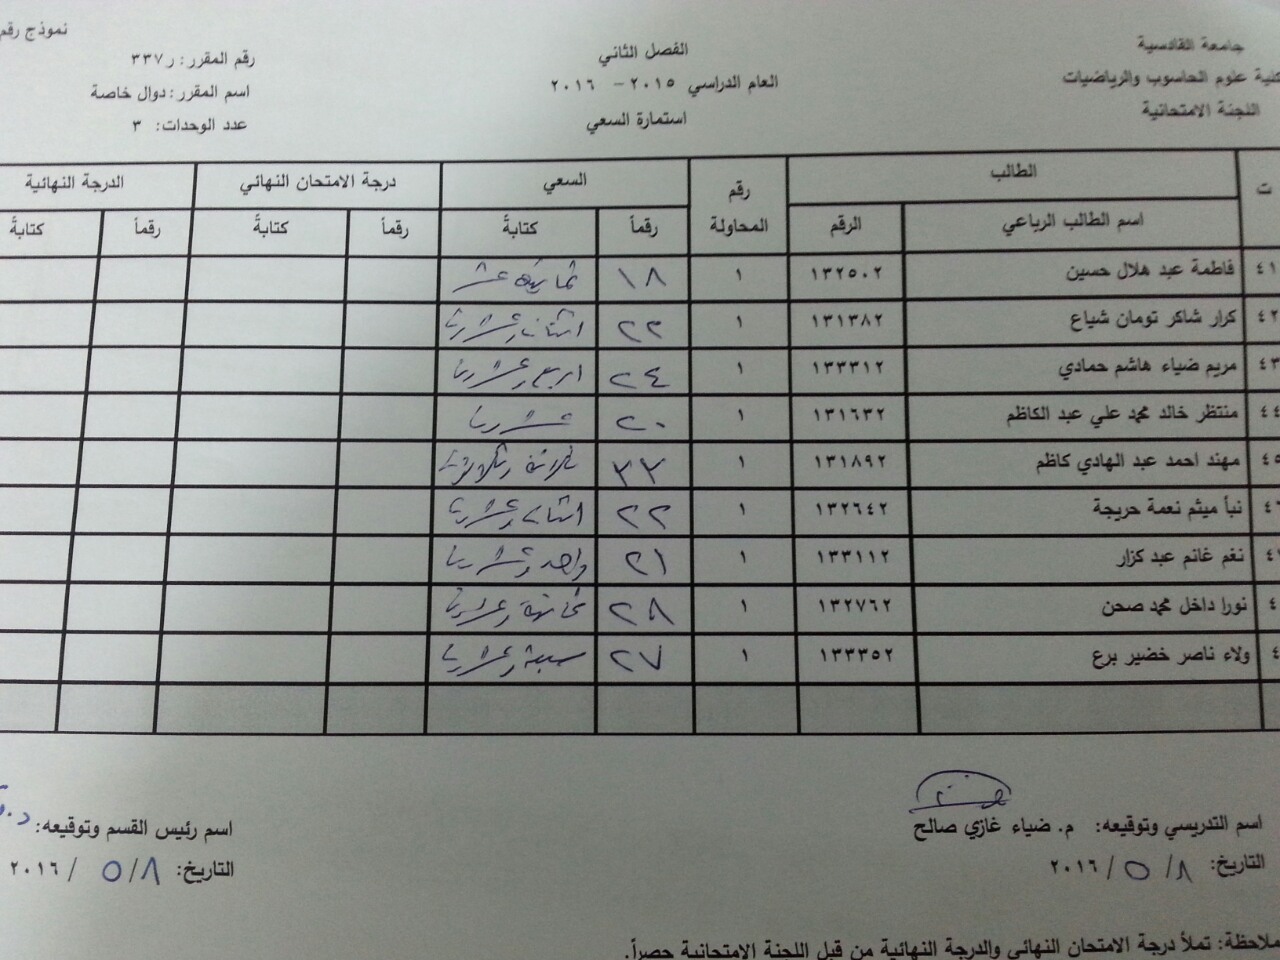 جامعة القادسية
كلية علوم الحاسوب والرياضيات
اللجنة الامتحانية
الفصل الثاني
العام الدراسي ٢٠١٥ – ٢٠١٦
استمارة السعي
نموذج رقم
رقم المقرر: ر٣٣٧
اسم المقرر: دوال خاصة
عدد الوحدات: ٣
ت الطالب رقم المحاولة السعي درجة الامتحان النهائي الدرجة النهائية
اسم الطالب الرباعي الرقم رقماً كتابةً رقماً كتابةً رقماً كتابةً
٤١ فاطمة عبد هلال حسين ١٣٢٥٠٢ ١ ١٨ ثمانية عشر
٤٢ كرار شاكر تومان شياع ١٣١٣٨٢ ١ ٢٢ اثنان وعشرون
٤٣ مريم ضياء هاشم حمادي ١٣٣٣١٢ ١ ٢٤ اربع وعشرون
٤٤ منتظر خالد محمد علي عبد الكاظم ١٣١٦٣٢ ١ ٢٠ عشرون
٤٥ مهند احمد عبد الهادي كاظم ١٣١٨٩٢ ١ ٣٣ ثلاثة وثلاثون
٤ نبأ ميثم نعمة حريجة ١٣٢٦٤٢ ١ ٢٢ اثنان وعشرون
٤ نغم غانم عبد كزار ١٣٣١١٢ ١ ٢١ واحد وعشرون
٤ نورا داخل محمد صحن ١٣٢٧٦٢ ١ ٢٨ ثمانية وعشرون
٤ ولاء ناصر خضير برع ١٣٣٣٥٢ ١ ٢٧ سبعة وعشرون
اسم التدريسي وتوقيعه: م. ضياء غازي صالح
التاريخ: ٨/ ٥ / ٢٠١٦
اسم رئيس القسم وتوقيعه: د.
التاريخ: ٨/ ٥ / ٢٠١٦
ملاحظة: تملأ درجة الامتحان النهائي والدرجة النهائية من قبل اللجنة الامتحانية حصراً.